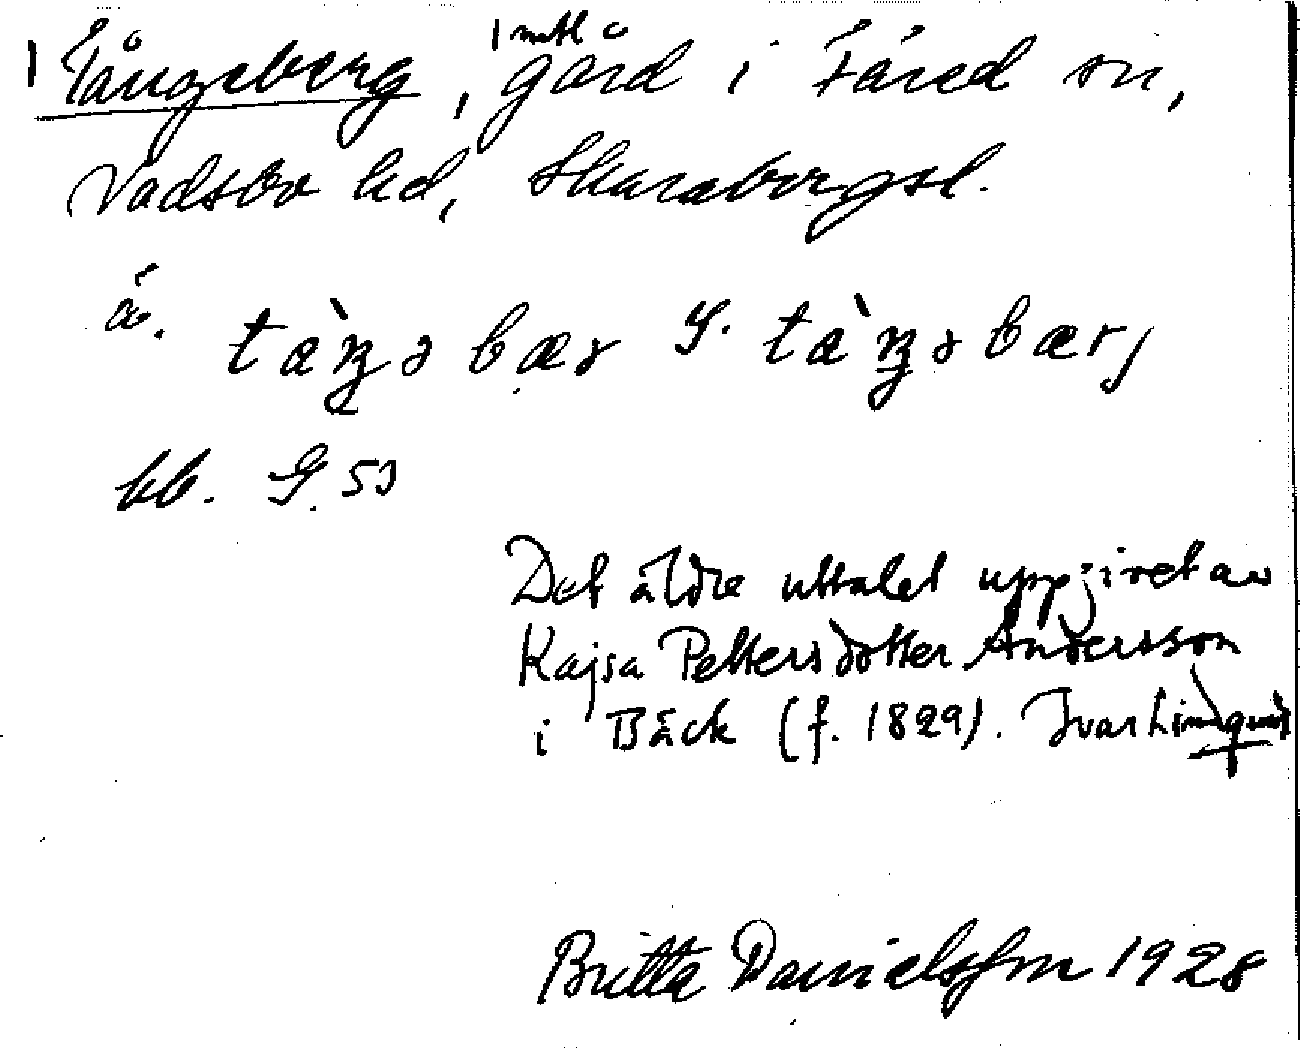 Tångeberg, 1 mtl gård i Fåred sn,
Vadsbo hd, Skaraborgsl.
ä. tàŋəbær y. tàŋəbærj
bb. G. 53
Det äldre uttalet uppgivet av
Kajsa Pettersdotter Andersson
i Bäck (f. 1829). Ivar Lindquist
Britta Danielsson 1928